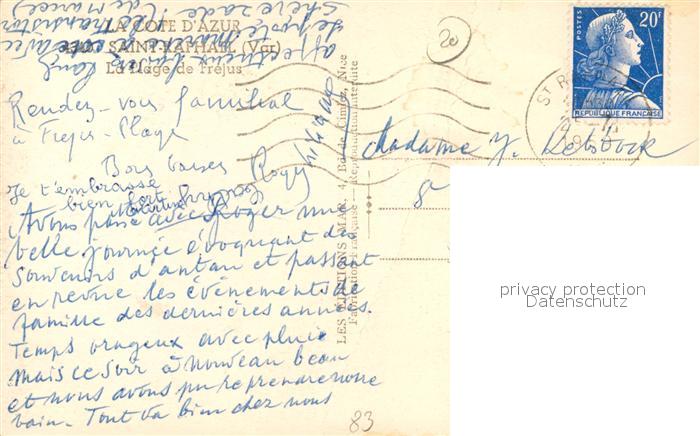 LA COTE D'AZUR
SAINT-RAPHAEL (Var)
La Plage de Fréjus
Rendez-vous familial
à Fréjus-Plage
Bons baisers
Roger
Je t'embrasse
bien fort
Avons passé avec Roger une
belle journée évoquant des
souvenirs d'antan et passant
en revue les événements de
famille des dernières années.
Temps orageux avec pluie
mais ce soir à nouveau beau
et nous avons pu reprendre notre
bain. Tout va bien chez nous
affectueux
LES EDITIONS "MAR", 4, Nice
Fabrication Française - Reproduction interdite
20
POSTES
20F
REPUBLIQUE FRANÇAISE
ST R
Madame Y.
83
privacy protection
Datenschutz